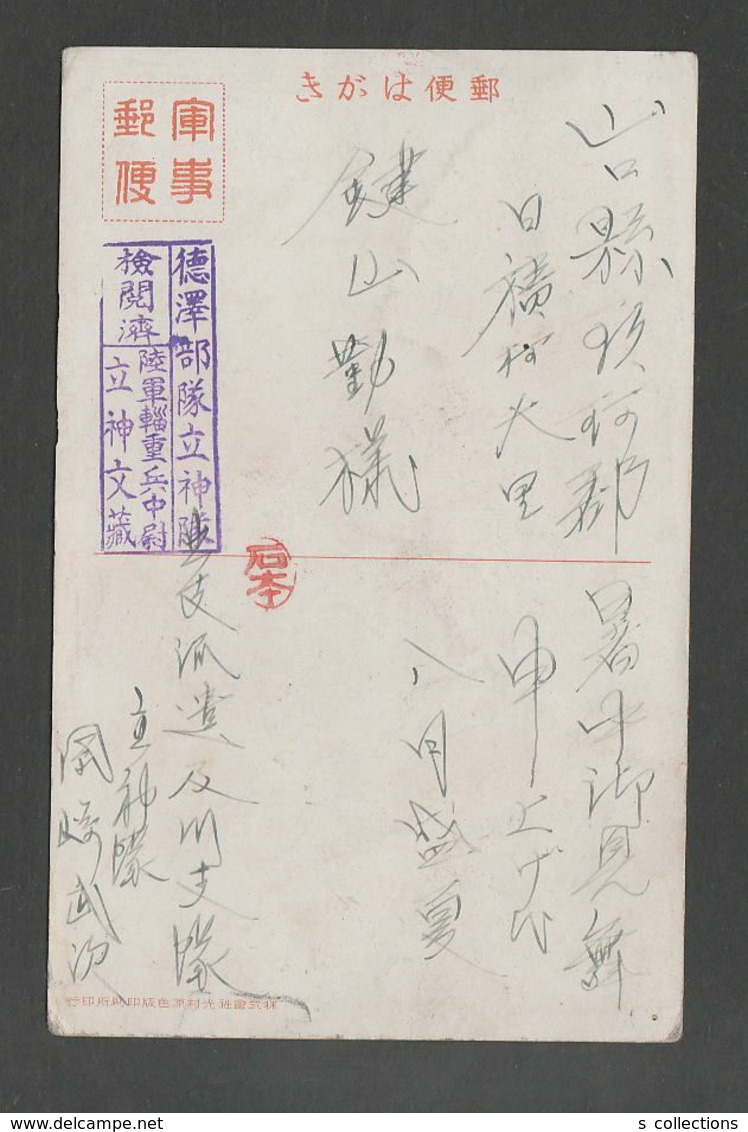 きがは便郵
軍事
郵便
山口縣玖珂郡
日積村大里
鍵山勤様
德澤部隊立神隊
檢閲濟
陸軍輜重兵中尉
立神文藏
石本
暑中御見舞
申上げ
八月盛夏
支派遣及川支隊
立神隊
岡崎武次
行印所刷印版色原村光社會式株
s collections